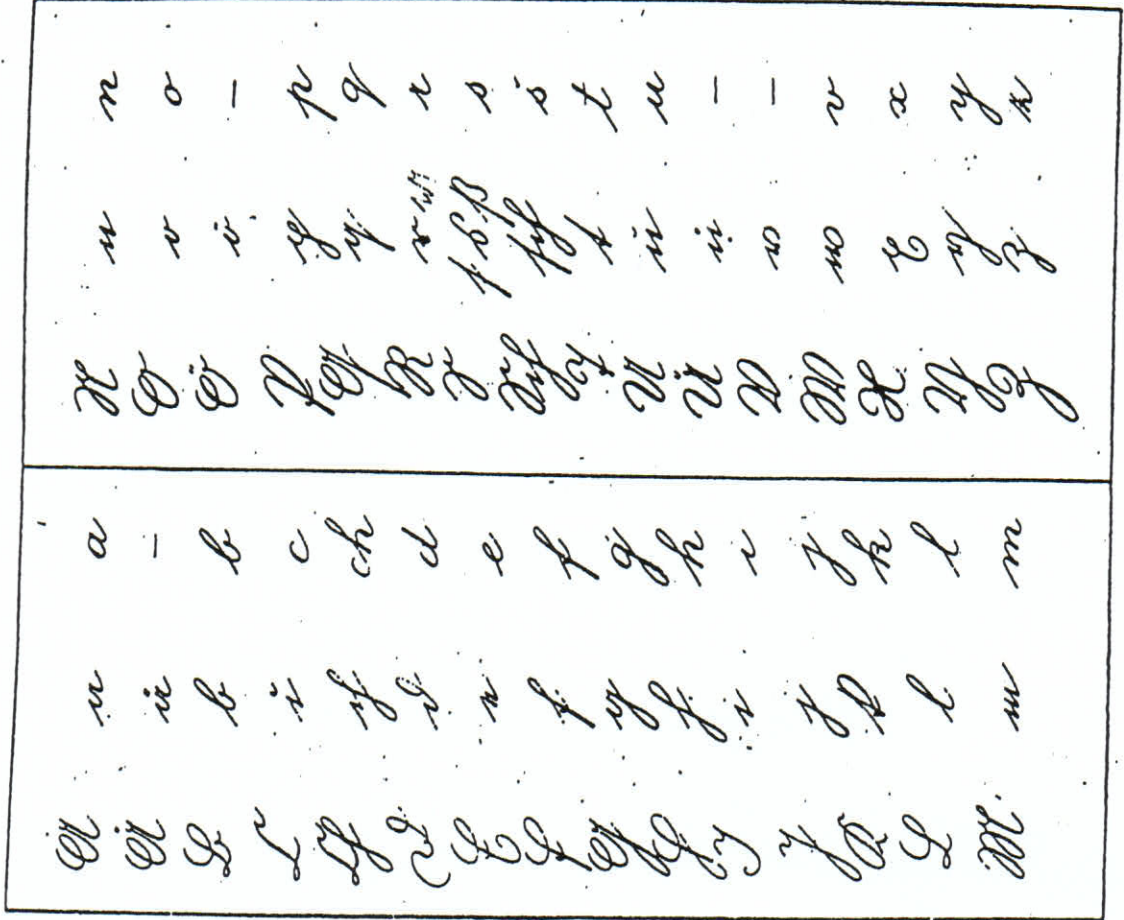 A a a
Ä ä –
B b b
C c c
Ch ch ch
D d d
E e e
F f f
G g g
H h h
I i i
J j j
K k k
L l l
M m m
N n n
O o o
Ö ö –
P p p
Q q q
R r r
S ſ s ß s
Sch ſch š
T t t
U u u
Ü ü –
V v –
W w v
X x x
Y y y
Z z z